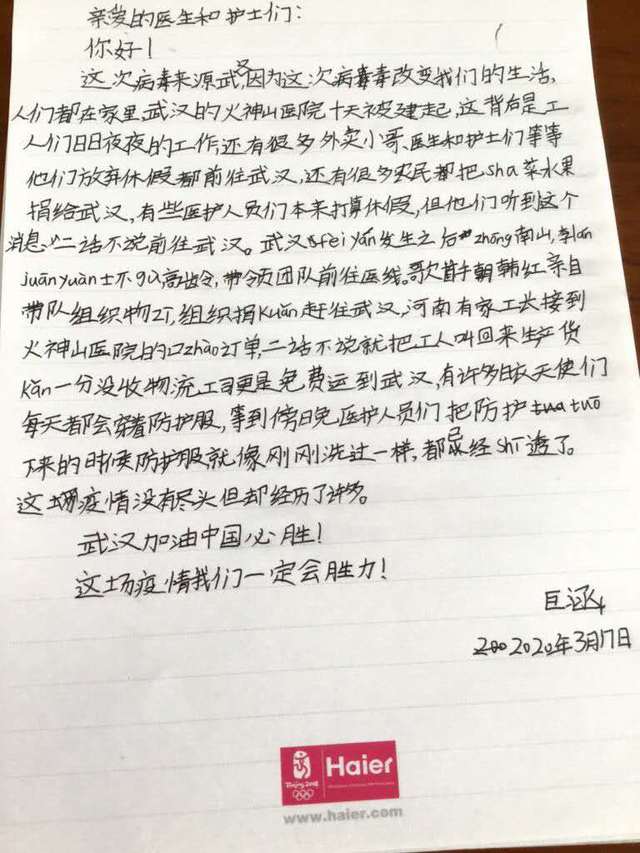 亲爱的医生和护士们：
你好！
这次病毒来源武汉因为这次病毒毒改变我们的生活，
人们都在家里武汉的火神山医院十天被建起，这背后是工
人们日日夜夜的工作，还有很多外卖小哥、医生和护士们等等
他们放弃休假都前往武汉，还有很多农民都把sha菜水果
捐给武汉，有些医护人员们本来打算休假，但他们听到这个
消息，二话不说前往武汉。武汉feiyán发生之后zhōng南山，李lan
juānyuàn士不gu高龄，带领团队前往医线。歌首韩红亲自
带队组织物，组织捐Kuǎn赶往武汉，河南有家工长接到
火神山医院的口zhào订单，二话不说就把工人叫回来生产货
Kuǎn一分没收物流工司更是免费运到武汉，有许多白衣天使们
每天都会穿着防护服，等到傍晚医护人员们把防护tuō
下来的时候防护服就像刚刚洗过一样，都已经shī透了。
这场疫情没有尽头但却经历了许多。
武汉加油中国必胜！
这场疫情我们一定会胜力！
巨涵
2020年3月17日
Beijing 2008
Haier
www.haier.com